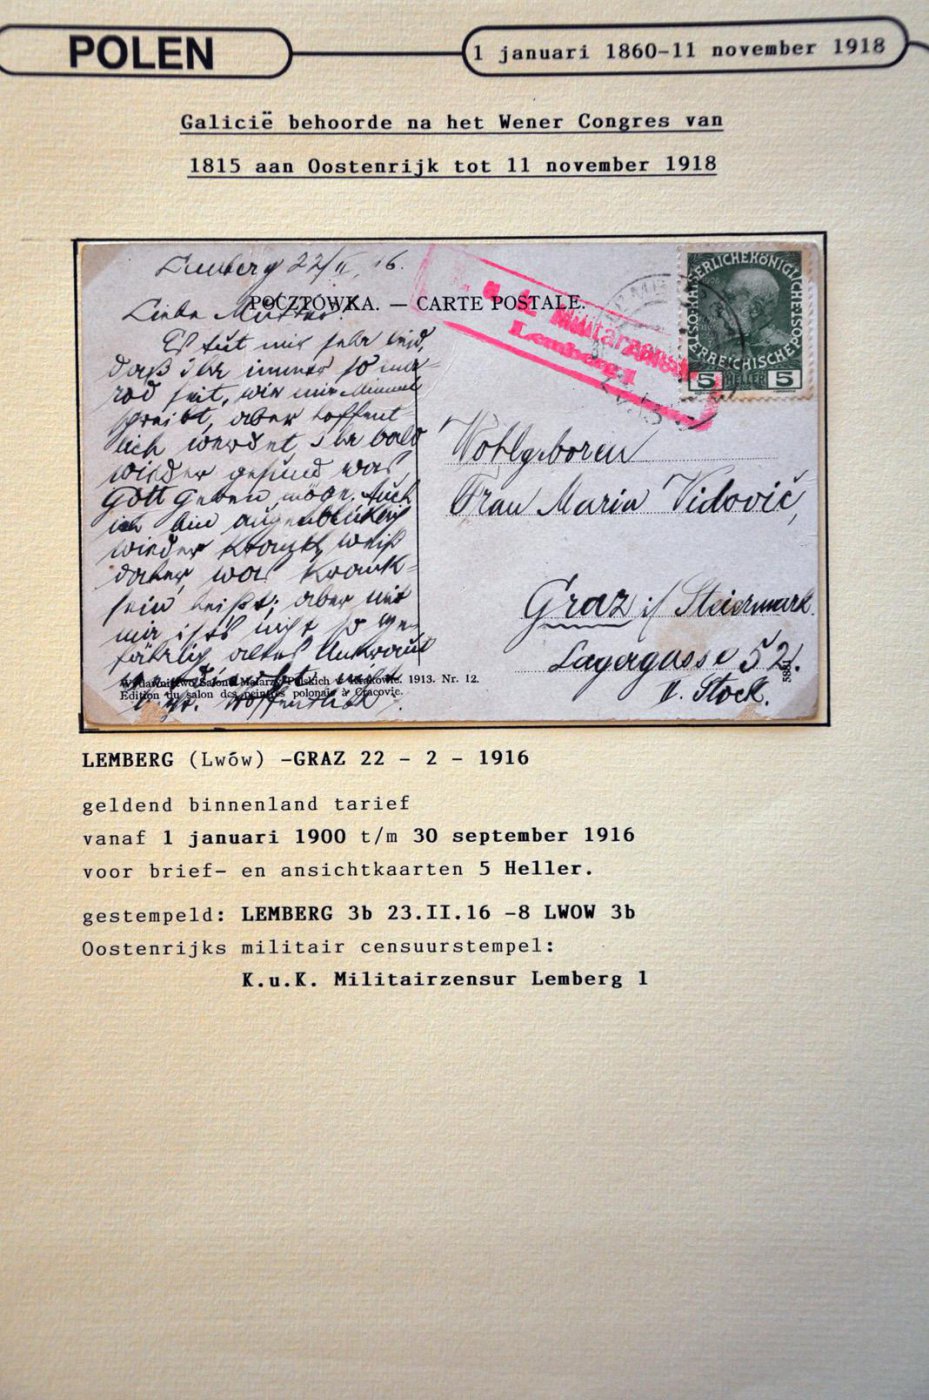 POLEN
1 januari 1860-11 november 1918
Galicië behoorde na het Wener Congres van
1815 aan Oostenrijk tot 11 november 1918
Lemberg 22/II. 16.
POCZTÓWKA. — CARTE POSTALE.
Liebe Mutter!
Es tut mir sehr leid,
daß ihr immer so ma-
rod seit, wie mir
schreibt, aber hoffent-
lich werdet ihr bald
wieder gesund was
Gott geben möge. Auch
ich bin augenblicklich
wieder krank, weiß
daher, was krank-
sein heißt; aber mit
mir ist's nicht so ge-
fährlich altes Unkraut
hoffentlich
Wydawnictwo Salonu Malarzy Polskich w Krakowie. 1913. Nr. 12.
Edition du salon des peintres polonais à Cracovie.
K. u. k. Militärzensur
Lemberg 1
5 HELLER 5
Wohlgeboren
Frau Maria Vidovič,
Graz i/ Steiermark.
Lagergasse 52.
II. Stock.
LEMBERG (Lwów) -GRAZ 22 - 2 - 1916
geldend binnenland tarief
vanaf 1 januari 1900 t/m 30 september 1916
voor brief- en ansichtkaarten 5 Heller.
gestempeld: LEMBERG 3b 23.II.16 -8 LWOW 3b
Oostenrijks militair censuurstempel:
K.u.K. Militairzensur Lemberg 1